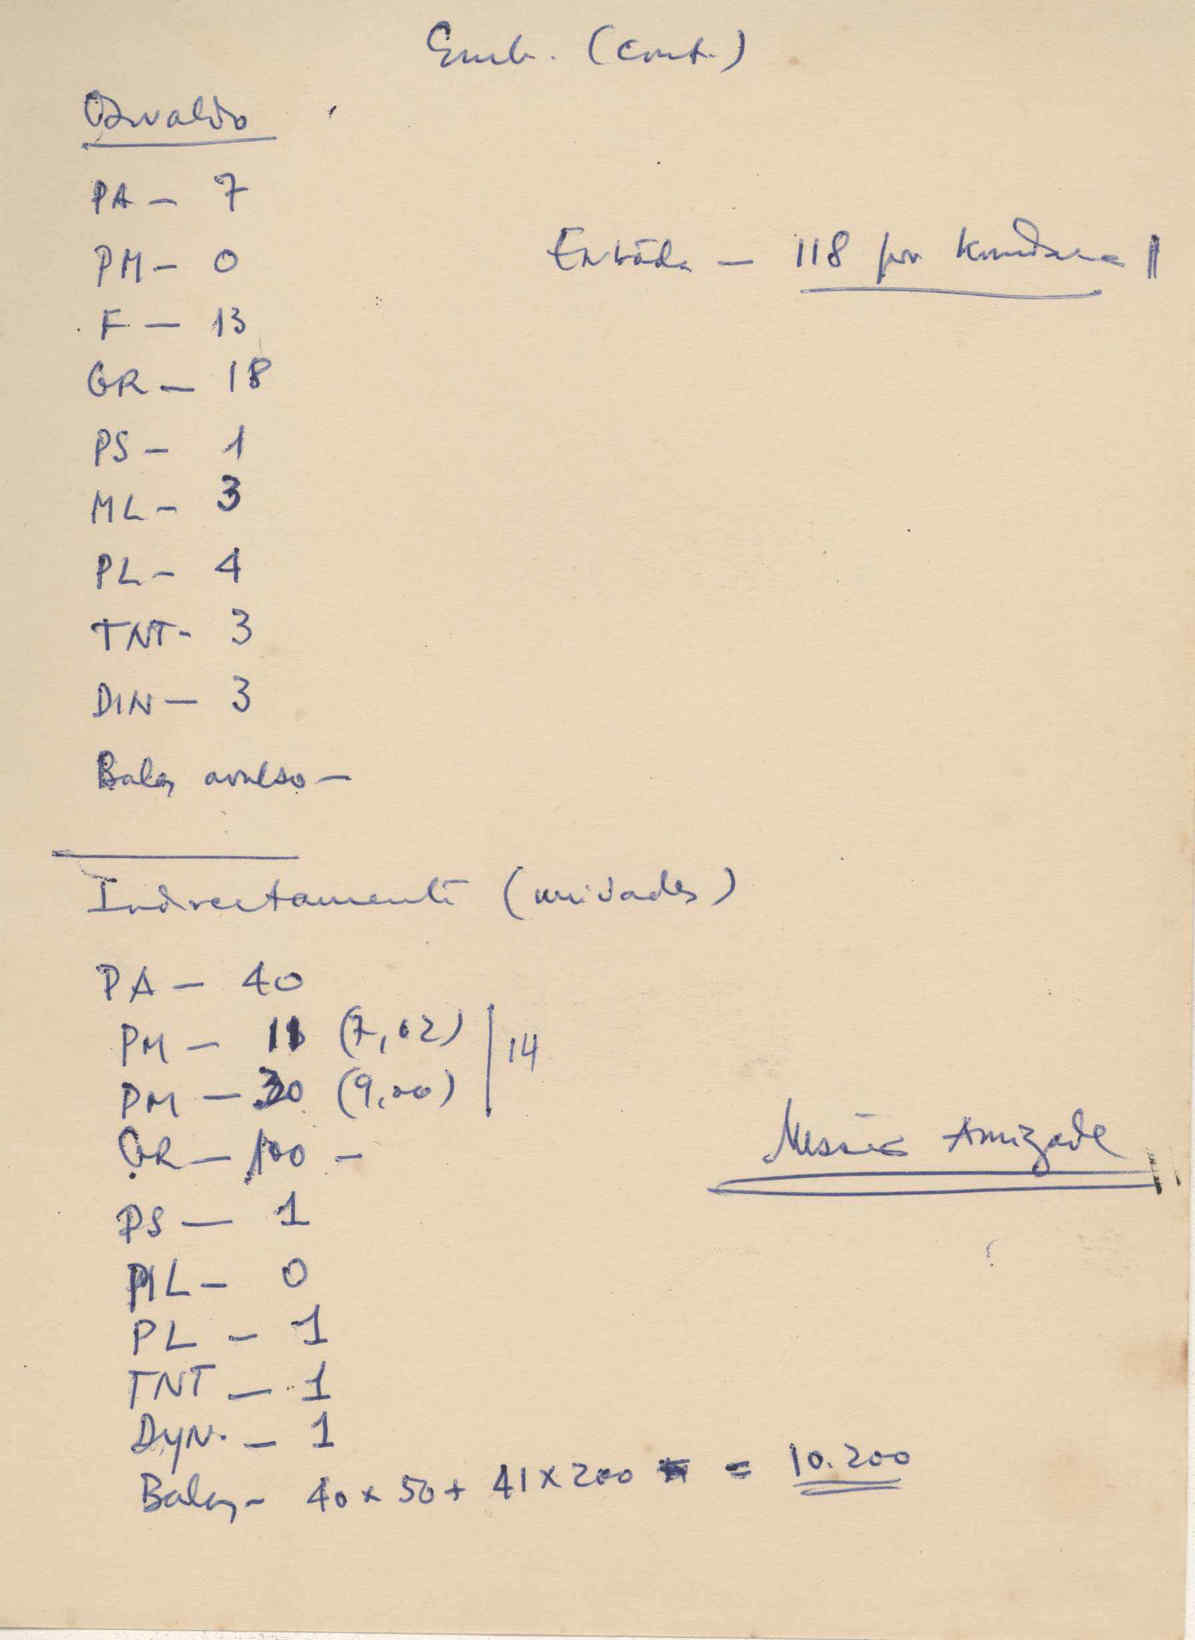 Emb. (cont.)
Osvaldo
PA – 7
PM – 0
Entrada – 118 por Kundara
F – 13
GR – 18
PS – 1
ML – 3
PL – 4
TNT – 3
DIN – 3
Balas avulso –
Indirectamente (unidades)
PA – 40
PM – 11 (7,62)
14
PM – 30 (9,00)
GR – 100 –
PS – 1
ML – 0
Amizade
PL – 1
TNT – 1
DYN. – 1
Balas – 40 x 50 + 41 x 200 = 10.200